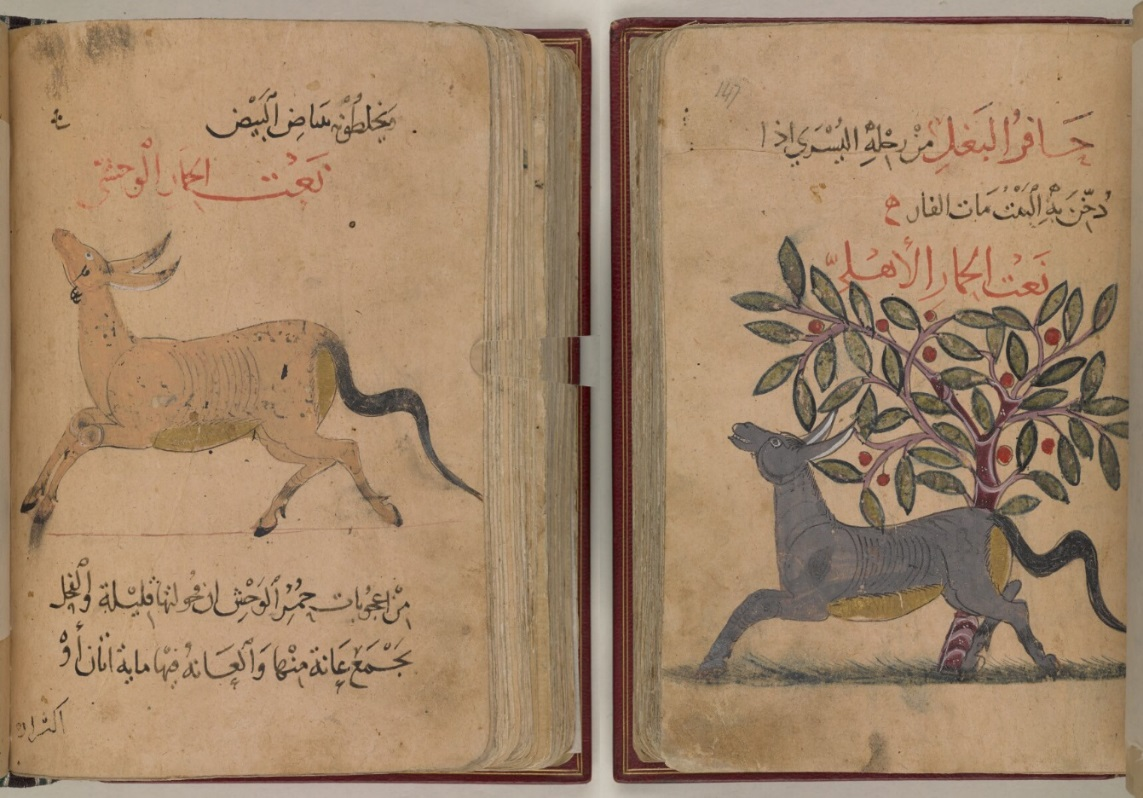 حَافِرُ البَغلِ مِنْ رِجْلِهِ اليُسْرَي اذا
دُخِّنَ بِهِ البَيْتُ مَاتَ الفَار
نَعْتُ الحِمَارِ الأَهْلِيِّ
147
بياض البَيْض
نَعْتُ الحِمَارِ الْوَحْشِي
مِنْ اعجُوبات حِمُرِ الوَحْش ان فحولتها قليلة وَالفحل
يَجْمَع عَانَة مِنْها وَالعَانَة فِيْها ماية اتان أَوْ
اكثر